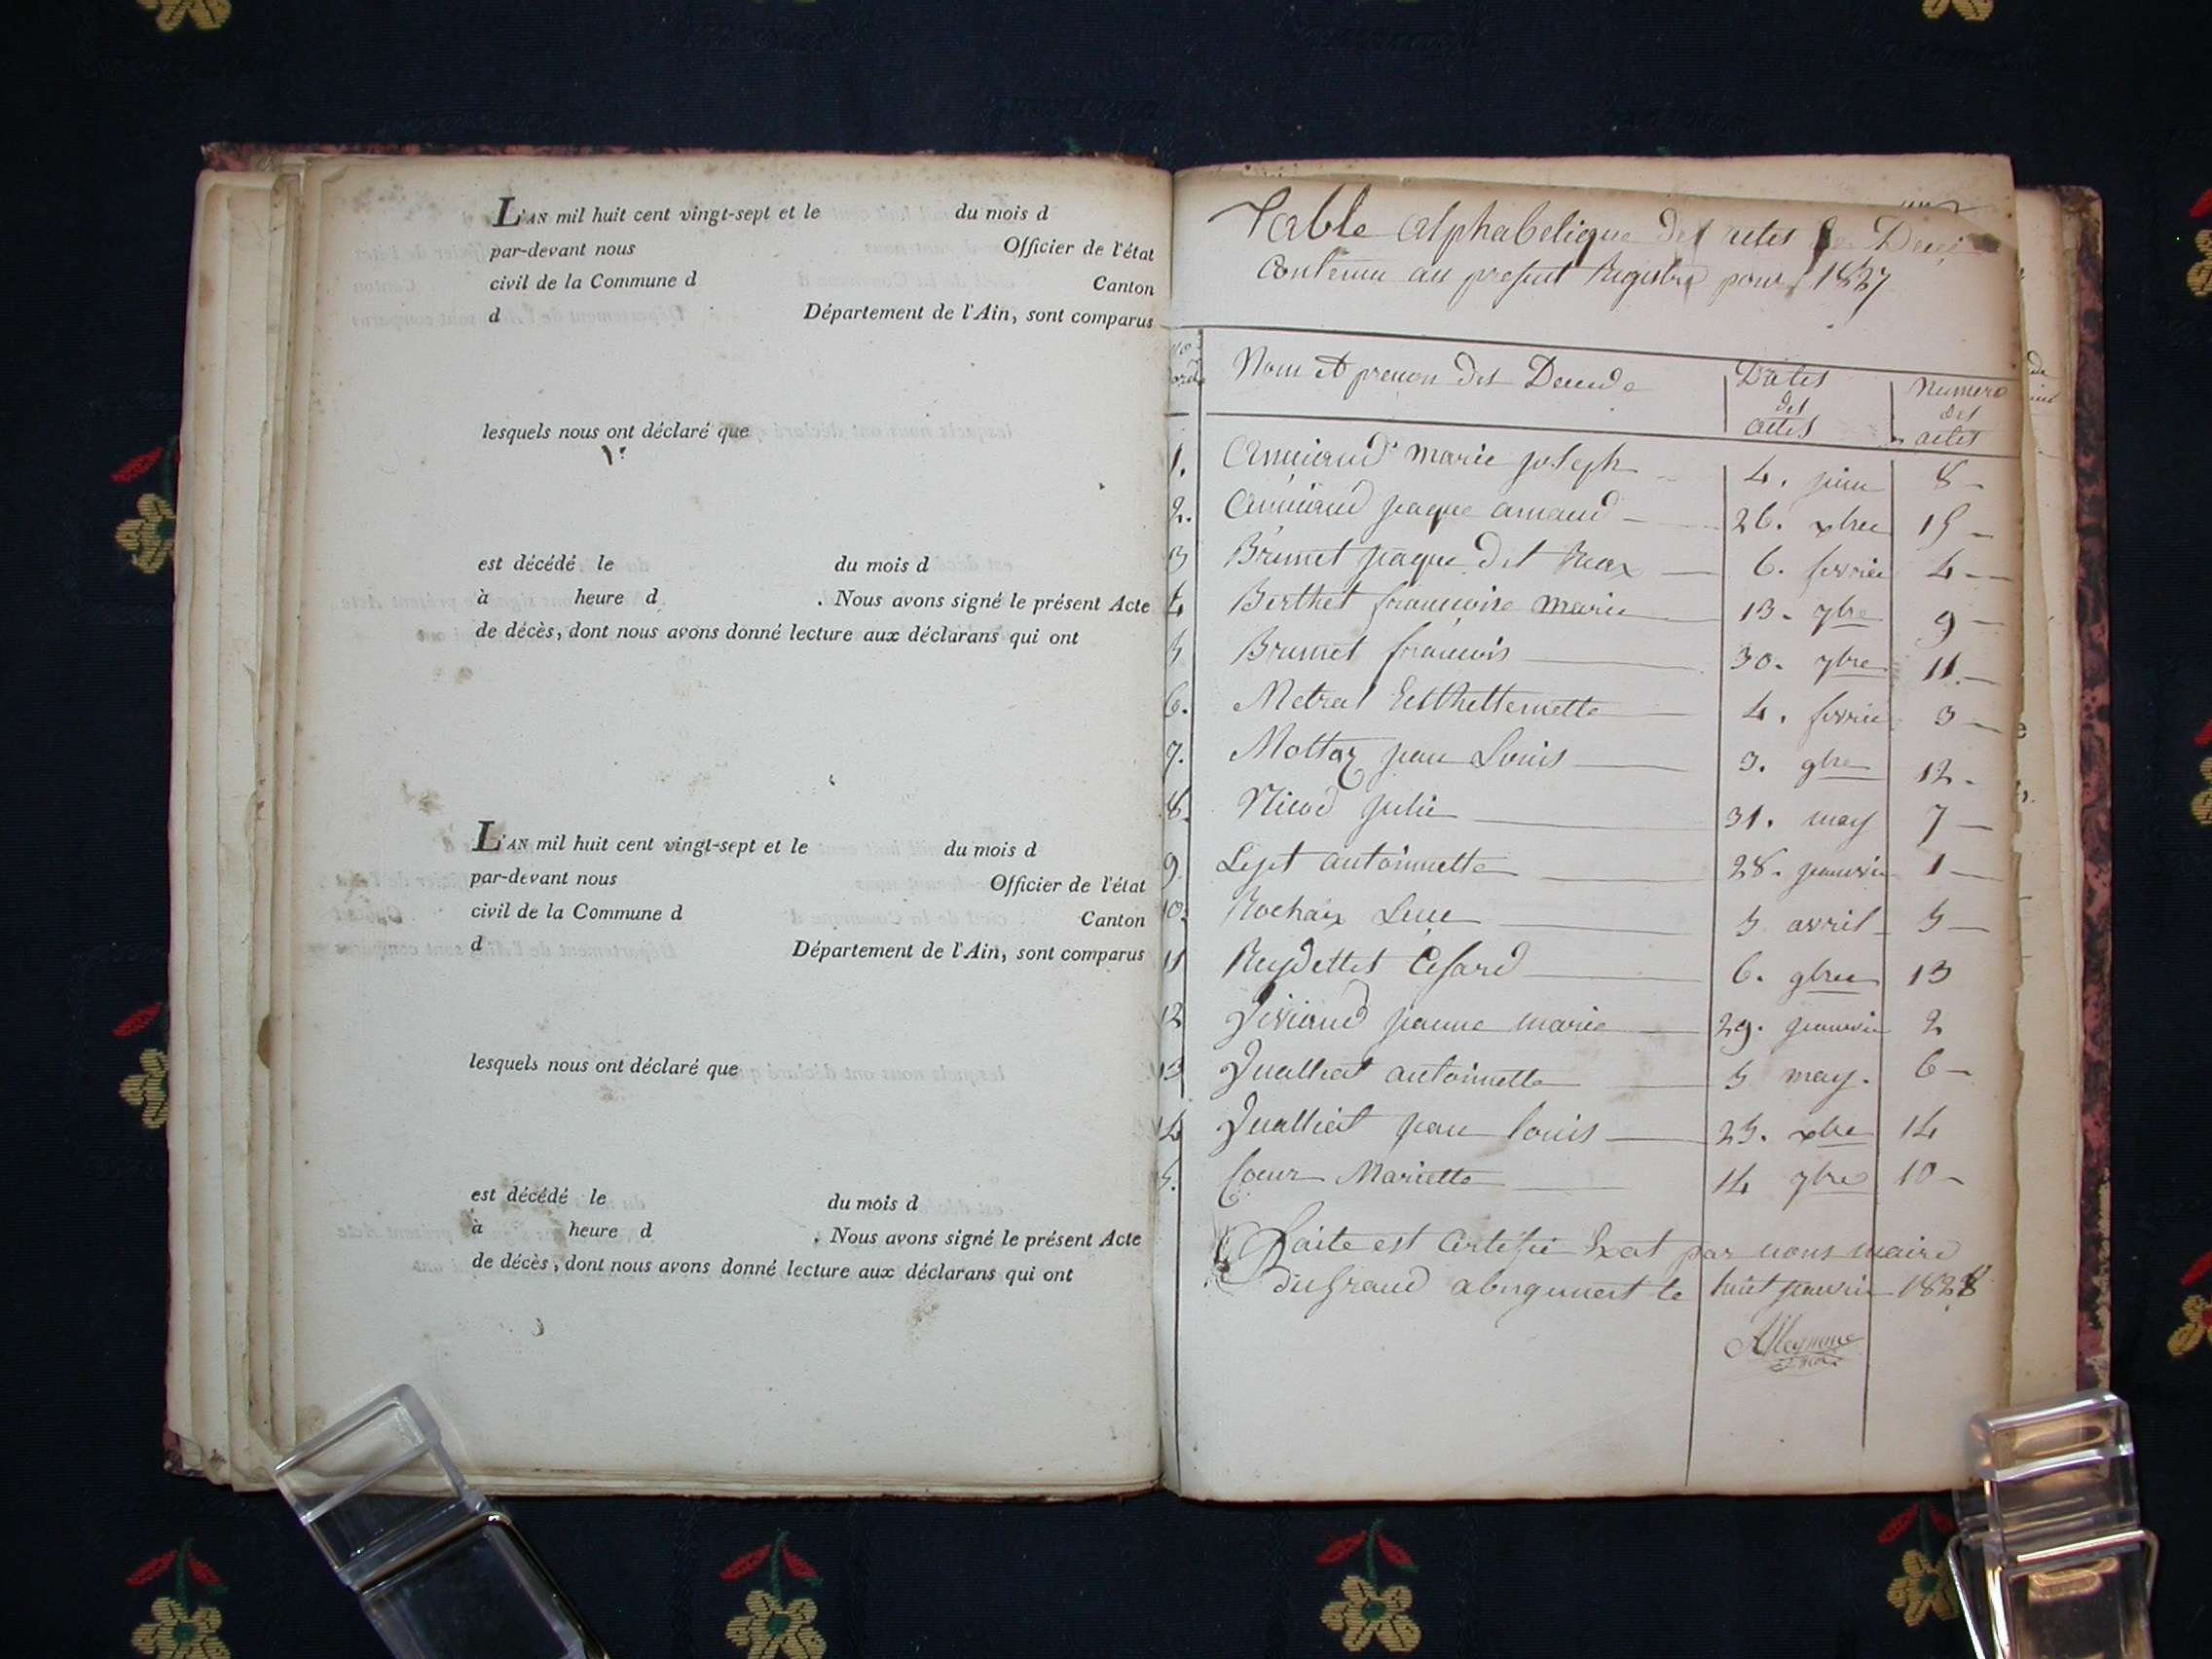 L'AN mil huit cent vingt-sept et le du mois d
par-devant nous Officier de l'état
civil de la Commune d Canton
d Département de l'Ain, sont comparus
lesquels nous ont déclaré que
est décédé le du mois d
à heure d . Nous avons signé le présent Acte
de décès, dont nous avons donné lecture aux déclarans qui ont
L'AN mil huit cent vingt-sept et le du mois d
par-devant nous Officier de l'état
civil de la Commune d Canton
d Département de l'Ain, sont comparus
lesquels nous ont déclaré que
est décédé le du mois d
à heure d . Nous avons signé le présent Acte
de décès, dont nous avons donné lecture aux déclarans qui ont
Table alphabetique des actes de Deces
Contenu au present Registre pour 1827
Nom et prenon des Decede Dates des actes Numero des actes
1. marie joseph 4. juin 8
2. jaque armand 26. xbre 15
3 Brunet jaque dit 6. fevrier 4
4 Berthet françoise marie 13. 7bre 9
5 Brunet francois 30. 7bre 11
6. Metral 4. fevrier 3
7. Mottaz jean Louis 3. 9bre 12
8. Nicod julie 31. may 7
9 antoinette 28. janvier 1
10. Rochaix Luc 5 avril 5
11 Reydellet Cesard 6. 9bre 13
12 jeanne marie 29. janvier 2
13 antoinette 5 may. 6
14 jean louis 25. xbre 14
5. Coeur Mariette 14 7bre 10
Faite est Certifié Exat par nous maire
du Grand abergement le huit janvier 1828